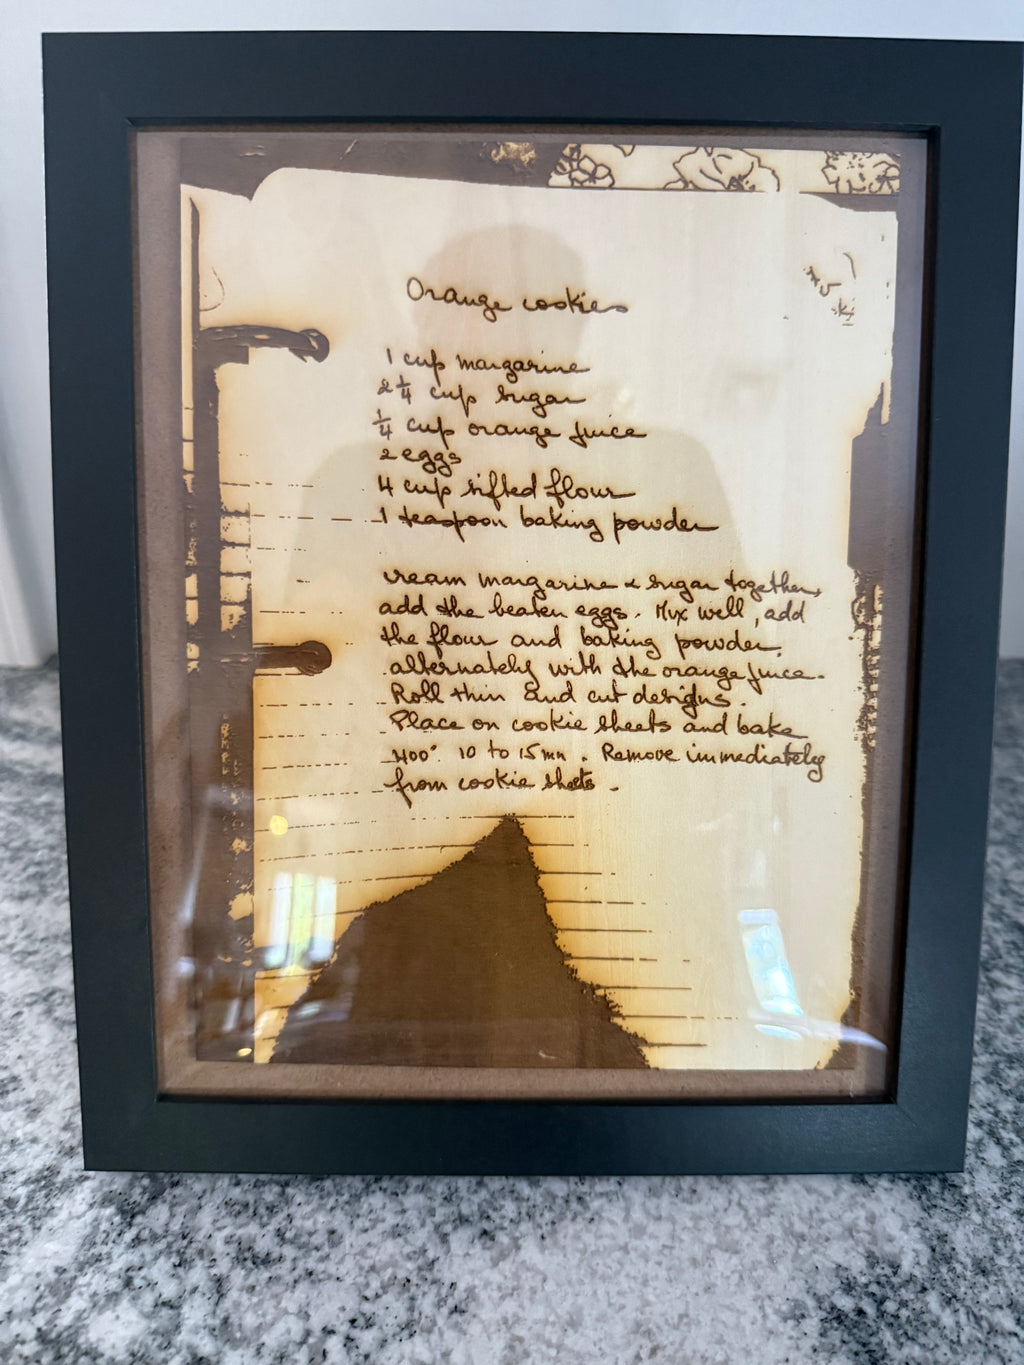 Orange cookies
1 cup margarine
2 1/4 cup sugar
1/4 cup orange juice
2 eggs
4 cup sifted flour
1 teaspoon baking powder
cream margarine & sugar together,
add the beaten eggs. Mix well, add
the flour and baking powder,
alternately with the orange juice.
Roll thin and cut designs.
Place on cookie sheets and bake
400° 10 to 15 mn. Remove immediately
from cookie sheets.